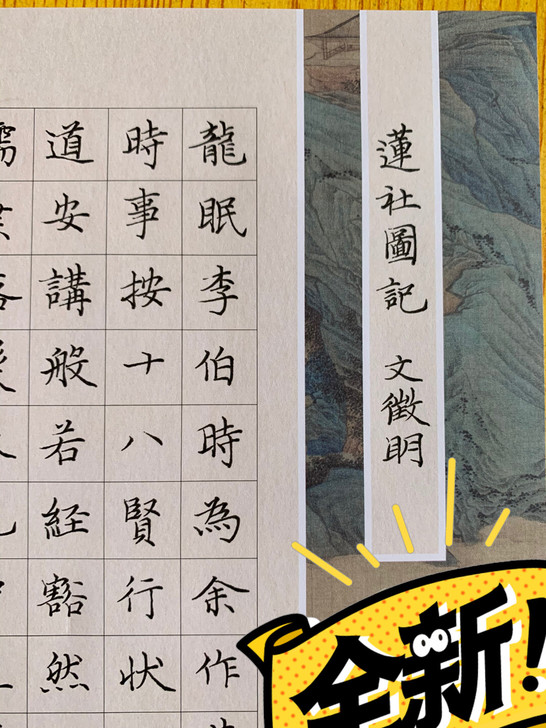 蓮社圖記 文徵明
龍眠李伯時為余作
時事按十八賢行狀
道安講般若経豁然
全新!